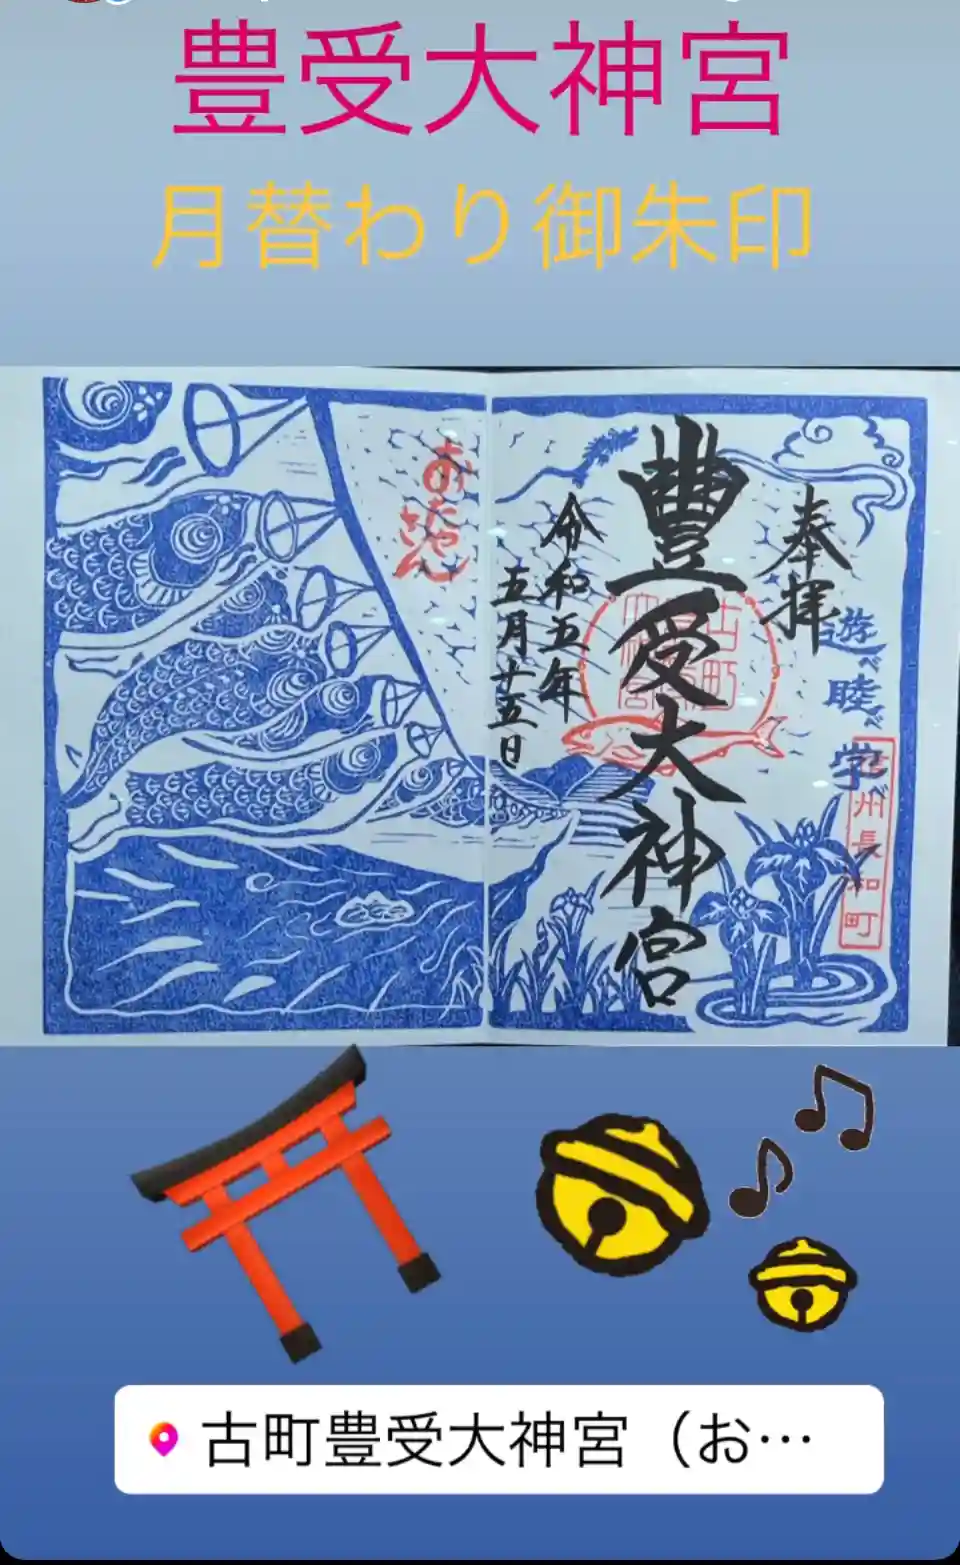 豊受大神宮
月替わり御朱印
奉拝
遊べ睦べ学べ
豊受大神宮
令和五年
五月十五日
おたやさん
州長和町
古町豊受大神宮（お…